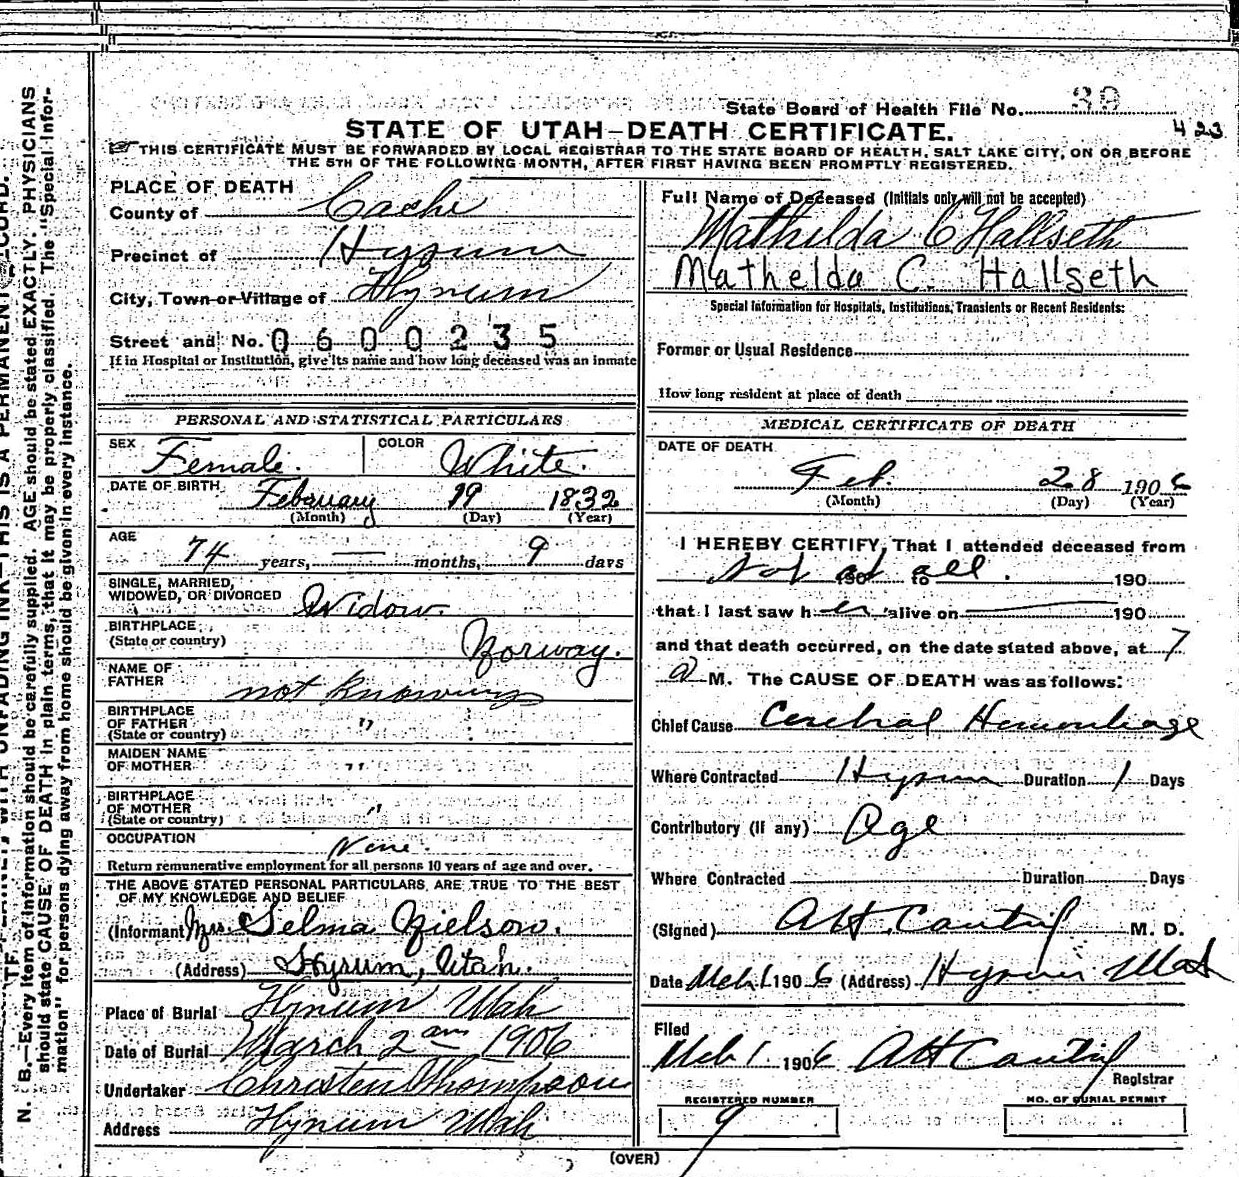 State Board of Health File No. 39
423
STATE OF UTAH—DEATH CERTIFICATE.
THIS CERTIFICATE MUST BE FORWARDED BY LOCAL REGISTRAR TO THE STATE BOARD OF HEALTH, SALT LAKE CITY, ON OR BEFORE
THE 5TH OF THE FOLLOWING MONTH, AFTER FIRST HAVING BEEN PROMPTLY REGISTERED.
PLACE OF DEATH
County of Cache
Precinct of Hyrum
City, Town or Village of Hyrum
Street and No. 0600235
If in Hospital or Institution, give its name and how long deceased was an inmate
PERSONAL AND STATISTICAL PARTICULARS
SEX Female. COLOR White.
DATE OF BIRTH February 19 1832
(Month) (Day) (Year)
AGE
74 years, — months, 9 days
SINGLE, MARRIED,
WIDOWED, OR DIVORCED Widow
BIRTHPLACE
(State or country) Norway.
NAME OF
FATHER not knowing
BIRTHPLACE
OF FATHER "
(State or country)
MAIDEN NAME
OF MOTHER "
BIRTHPLACE
OF MOTHER "
(State or country)
OCCUPATION None.
Return remunerative employment for all persons 10 years of age and over.
THE ABOVE STATED PERSONAL PARTICULARS ARE TRUE TO THE BEST
OF MY KNOWLEDGE AND BELIEF
(Informant Mrs. Selma Nielson.
(Address) Hyrum, Utah.
Place of Burial Hyrum Utah
Date of Burial March 2 1906
Undertaker Christen Thompson
Address Hyrum Utah
Full Name of Deceased (Initials only will not be accepted)
Mathilda C Hallseth
Mathelda C. Hallseth
Special Information for Hospitals, Institutions, Transients or Recent Residents:
Former or Usual Residence
How long resident at place of death
MEDICAL CERTIFICATE OF DEATH
DATE OF DEATH
Feb. 28 1906
(Month) (Day) (Year)
I HEREBY CERTIFY, That I attended deceased from
Not at all. 190 to 190
that I last saw her alive on — 190
and that death occurred, on the date stated above, at 7
a M. The CAUSE OF DEATH was as follows:
Chief Cause Cerebral Hemorrhage
Where Contracted Hyrum Duration 1 Days
Contributory (if any) Age
Where Contracted Duration Days
(Signed) M. D.
Date Mch 1 1906 (Address) Hyrum Utah
Filed
Mch 1 1906
Registrar
REGISTERED NUMBER
9
NO. OF BURIAL PERMIT
(OVER)
N. B.—Every item of information should be carefully supplied. AGE should be stated EXACTLY. PHYSICIANS
should state CAUSE OF DEATH in plain terms, that it may be properly classified. The "Special Infor-
mation" for persons dying away from home should be given in every instance.
WITH UNFADING INK—THIS IS A PERMANENT RECORD.